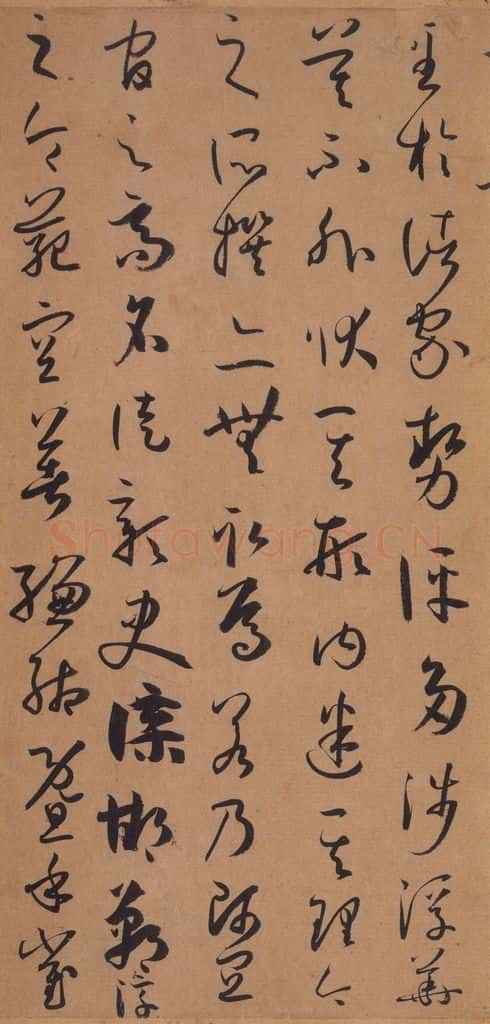 至於諸家勢評多涉浮華
莫不外狀其形內迷其理今
之所撰亦無取焉若乃師宜
官之高名徒彰史牒邯鄲淳
之令範空著縑緗暨乎崔
Shufawang.CN